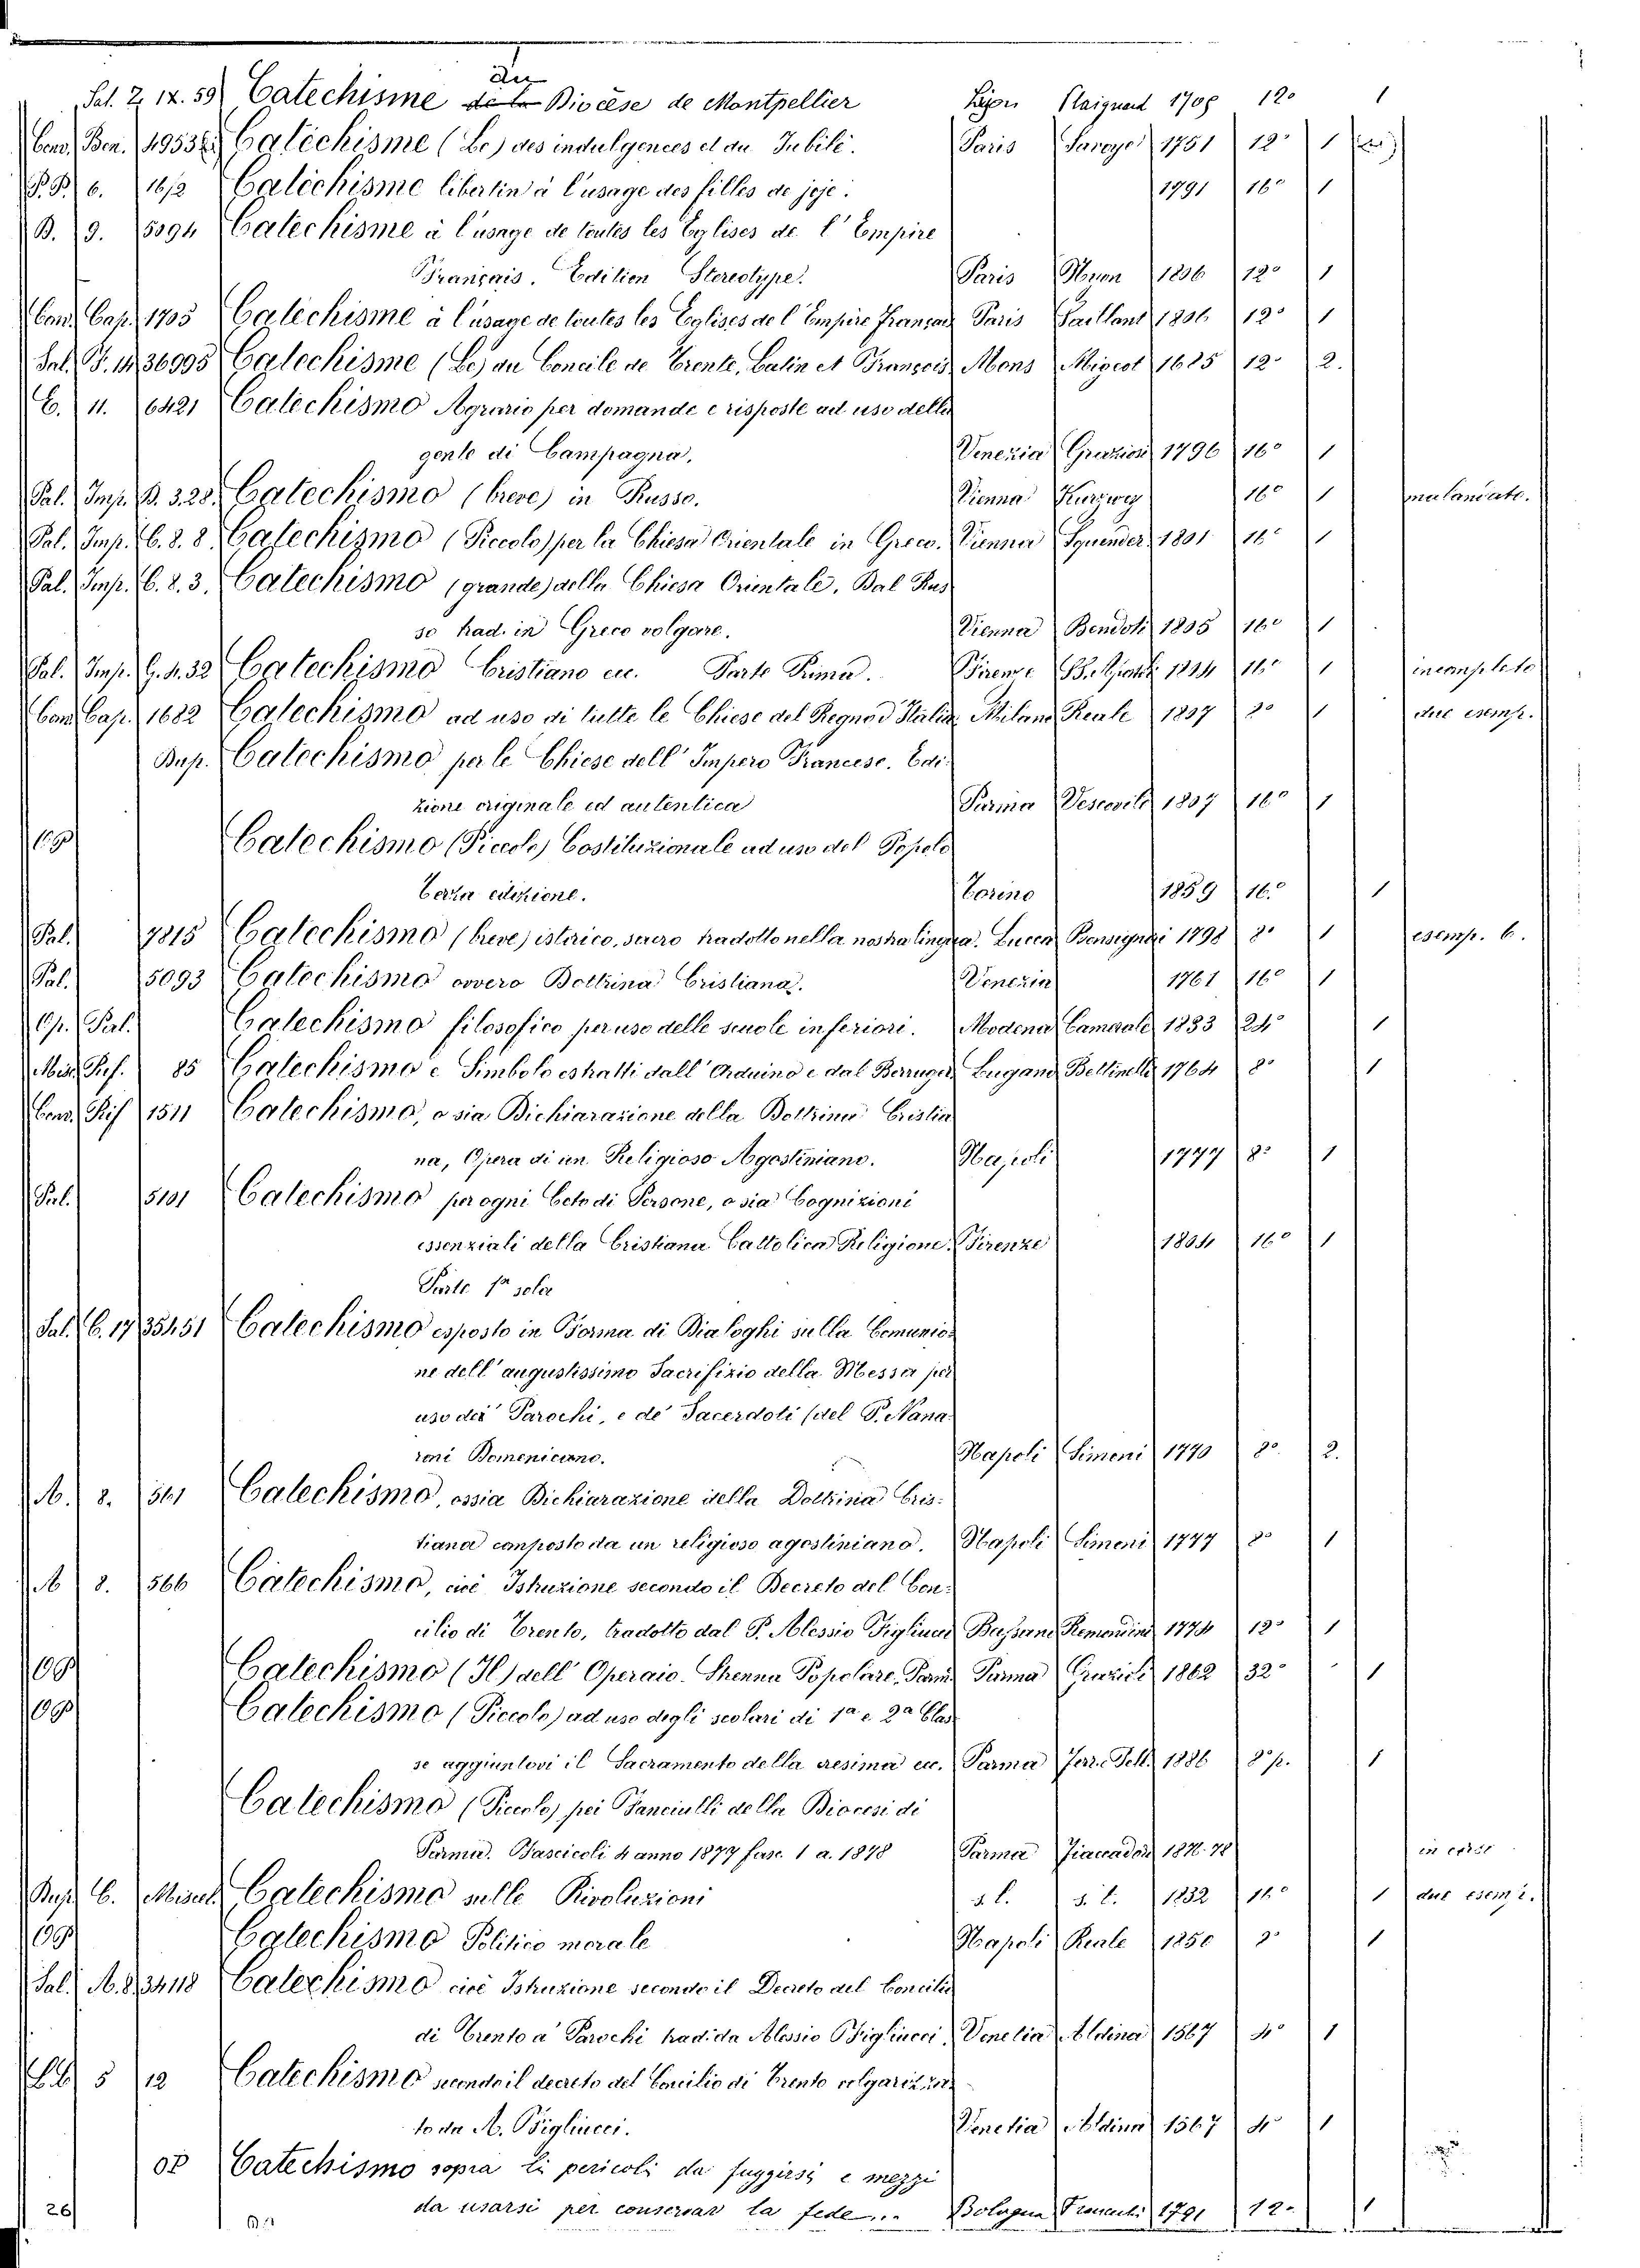 Sal. Z. IX. 59 Catechisme de la du Diocèse de Montpellier Lijon Plaignard 1708 12° 1
Conv. Ben. 49538 Catéchisme (Le) des indulgences et du Jubilé. Paris Savoye 1751 12° 1
P. P. 6. 16/2 Catéchisme libertin à l'usage des filles de joje. 1791 16° 1
B. 9. 5094 Catéchisme à l'usage de toutes les Eglises de l'Empire
Français. Edition Stereotype. Paris Nyon 1806 12° 1
Conv. Cap. 1705 Catéchisme à l'usage de toutes les Eglises de l'Empire Français Paris Gailland 1806 12° 1
Sal. P. 14 36995 Catéchisme (Le) du Concile de Trente, Latin et François. Mons Migeot 1685 12° 2.
C. 11. 6421 Catechismo Agrario per domande e risposte ad uso della
gente di Campagna. Venezia Graziosi 1796 16° 1
Pal. Imp. B. 3.28. Catechismo (breve) in Russo. Vienna Kurzweg 16° 1
Pal. Imp. C. 8. 8. Catechismo (Piccolo) per la Chiesa Orientale in Greco. Vienna 1801 16° 1
Pal. Imp. C. 8. 3. Catechismo (grande) della Chiesa Orientale. Dal Rus
so trad. in Greco volgare. Vienna Bendoti 1805 16° 1
Pal. Imp. G. 4. 32 Catechismo Cristiano ecc. Parte Prima. Firenze 16° 1 incompleto
Conv. Cap. 1682 Catechismo ad uso di tutte le Chiese del Regno d'Italia Milano Reale 1807 8° 1 due esemp.
Dup. Catechismo per le Chiese dell'Impero Francese. Edi-
zione originale ed autentica Parma Vescovile 1807 16° 1
Catechismo (Piccolo) Costituzionale ad uso del Popolo
Terza edizione. Torino 1859 16.° 1
Pal. 7815 Catechismo (breve) istorico, sacro tradotto nella nostra lingua. Lucca Bonsignori 1798 8° 1 esemp. 6.
Pal. 5093 Catechismo ovvero Dottrina Cristiana. Venezia 1761 16° 1
Op. Pal. Catechismo filosofico per uso delle scuole inferiori. Modena Camerale 1833 24° 1
Min. Rif. 85 Catechismo e Simbolo estratti dall'Arduino e dal Berruger Lugano Bettinelli 1764 8° 1
Conv. Rif 1511 Catechismo, o sia Dichiarazione della Dottrina Cristia
na, Opera di un Religioso Agostiniano. Napoli 1777 8° 1
Pal. 5101 Catechismo per ogni Ceto di Persone, o sia Cognizioni
essenziali della Cristiana Cattolica Religione. Firenze 1804 16° 1
Parte 1a sola
Sal. C. 17 35451 Catechismo esposto in Forma di Dialoghi sulla Comunio-
ne dell'augustissimo Sacrifizio della Messa per
uso dei Parochi, e de' Sacerdoti (del P. Nana-
roni Domenicano. Napoli Simoni 1770 8° 2.
A. 8. 561 Catechismo, ossia Dichiarazione della Dottrina Cris-
tiana composto da un religioso agostiniano. Napoli Simoni 1777 8° 1
A 8. 566 Catechismo, cioè Istruzione secondo il Decreto del Con-
cilio di Trento, tradotto dal P. Alessio Figliucci Bassano Remondini 1774 12° 1
Catechismo (Il) dell'Operaio. Strenna Popolare. Parma Grazioli 1862 32° 1
Catechismo (Piccolo) ad uso degli scolari di 1a e 2a Clas
se aggiuntovi il Sacramento della cresima ecc. Parma 1886 8° p. 1
Catechismo (Piccolo) pei Fanciulli della Diocesi di
Parma. Fascicoli 4 anno 1877 fasc. 1 a. 1878 Parma Fiaccadori 1876.78
Dup. C. Miscel. Catechismo sulle Rivoluzioni s. l. s. t. 1832 16° 1 due esemp.
Catechismo Politico morale Napoli Reale 1850 8° 1
Sal. A. 8 34118 Catechismo cioè Istruzione secondo il Decreto del Concilio
di Trento a' Parochi trad. da Alessio Figliucci. Venetia Aldina 1567 4° 1
5 12 Catechismo secondo il decreto del Concilio di Trento volgarizza-
to da A. Figliucci. Venetia Aldina 1567 4° 1
OP Catechismo sopra li pericoli da fuggirsi e mezzi
26 da usarsi per conservar la fede... Bologna 1791 12° 1